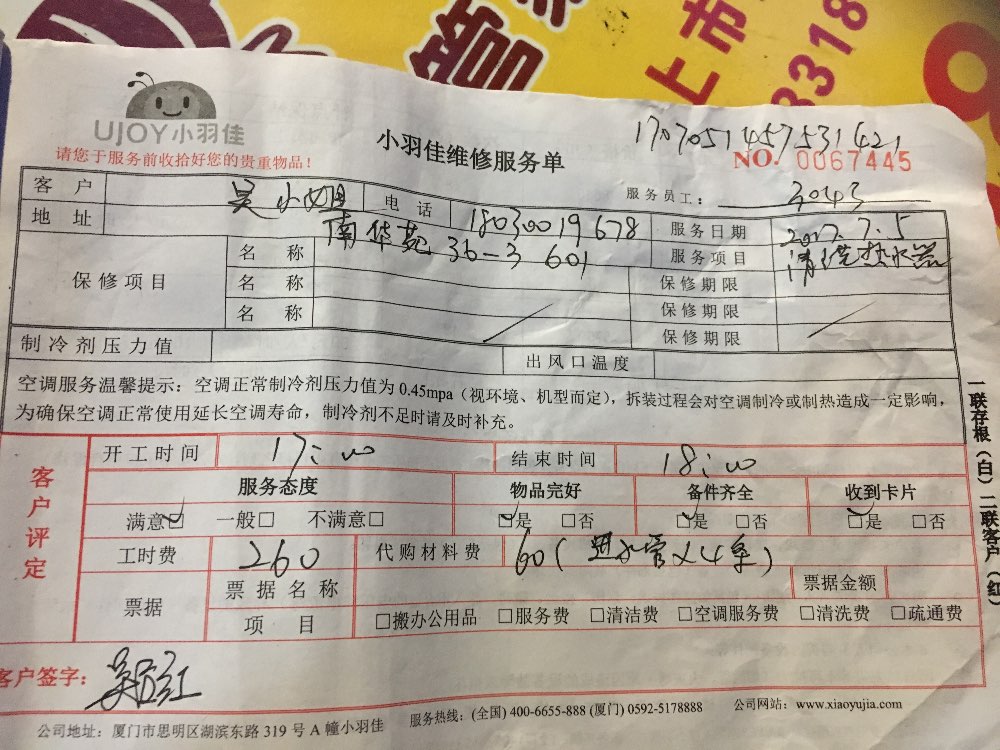 管
上市
8318
UJOY小羽佳
请您于服务前收拾好您的贵重物品！
小羽佳维修服务单
1707051457531421
NO. 0067445
服务员工： 3043
客户 吴小姐 电话 18030019678 服务日期 2017.7.5
地址 南华苑 36-3 601 服务项目 清洗热水器
保修项目 名称 保修期限
名称 保修期限
名称 保修期限
制冷剂压力值 出风口温度
空调服务温馨提示：空调正常制冷剂压力值为 0.45mpa（视环境、机型而定），拆装过程会对空调制冷或制热造成一定影响，
为确保空调正常使用延长空调寿命，制冷剂不足时请及时补充。
客户评定
开工时间 17:00 结束时间 18:00
服务态度 物品完好 备件齐全 收到卡片
满意□ 一般□ 不满意□ □是 □否 □是 □否 □是 □否
工时费 260 代购材料费 60（进水管×4条）
票据 票据名称 票据金额
项目 □搬办公用品 □服务费 □清洁费 □空调服务费 □清洗费 □疏通费
客户签字：
公司地址：厦门市思明区湖滨东路 319 号 A 幢小羽佳 服务热线：(全国) 400-6655-888 (厦门) 0592-5178888 公司网站：www.xiaoyujia.com
一联存根（白）二联客户（红）